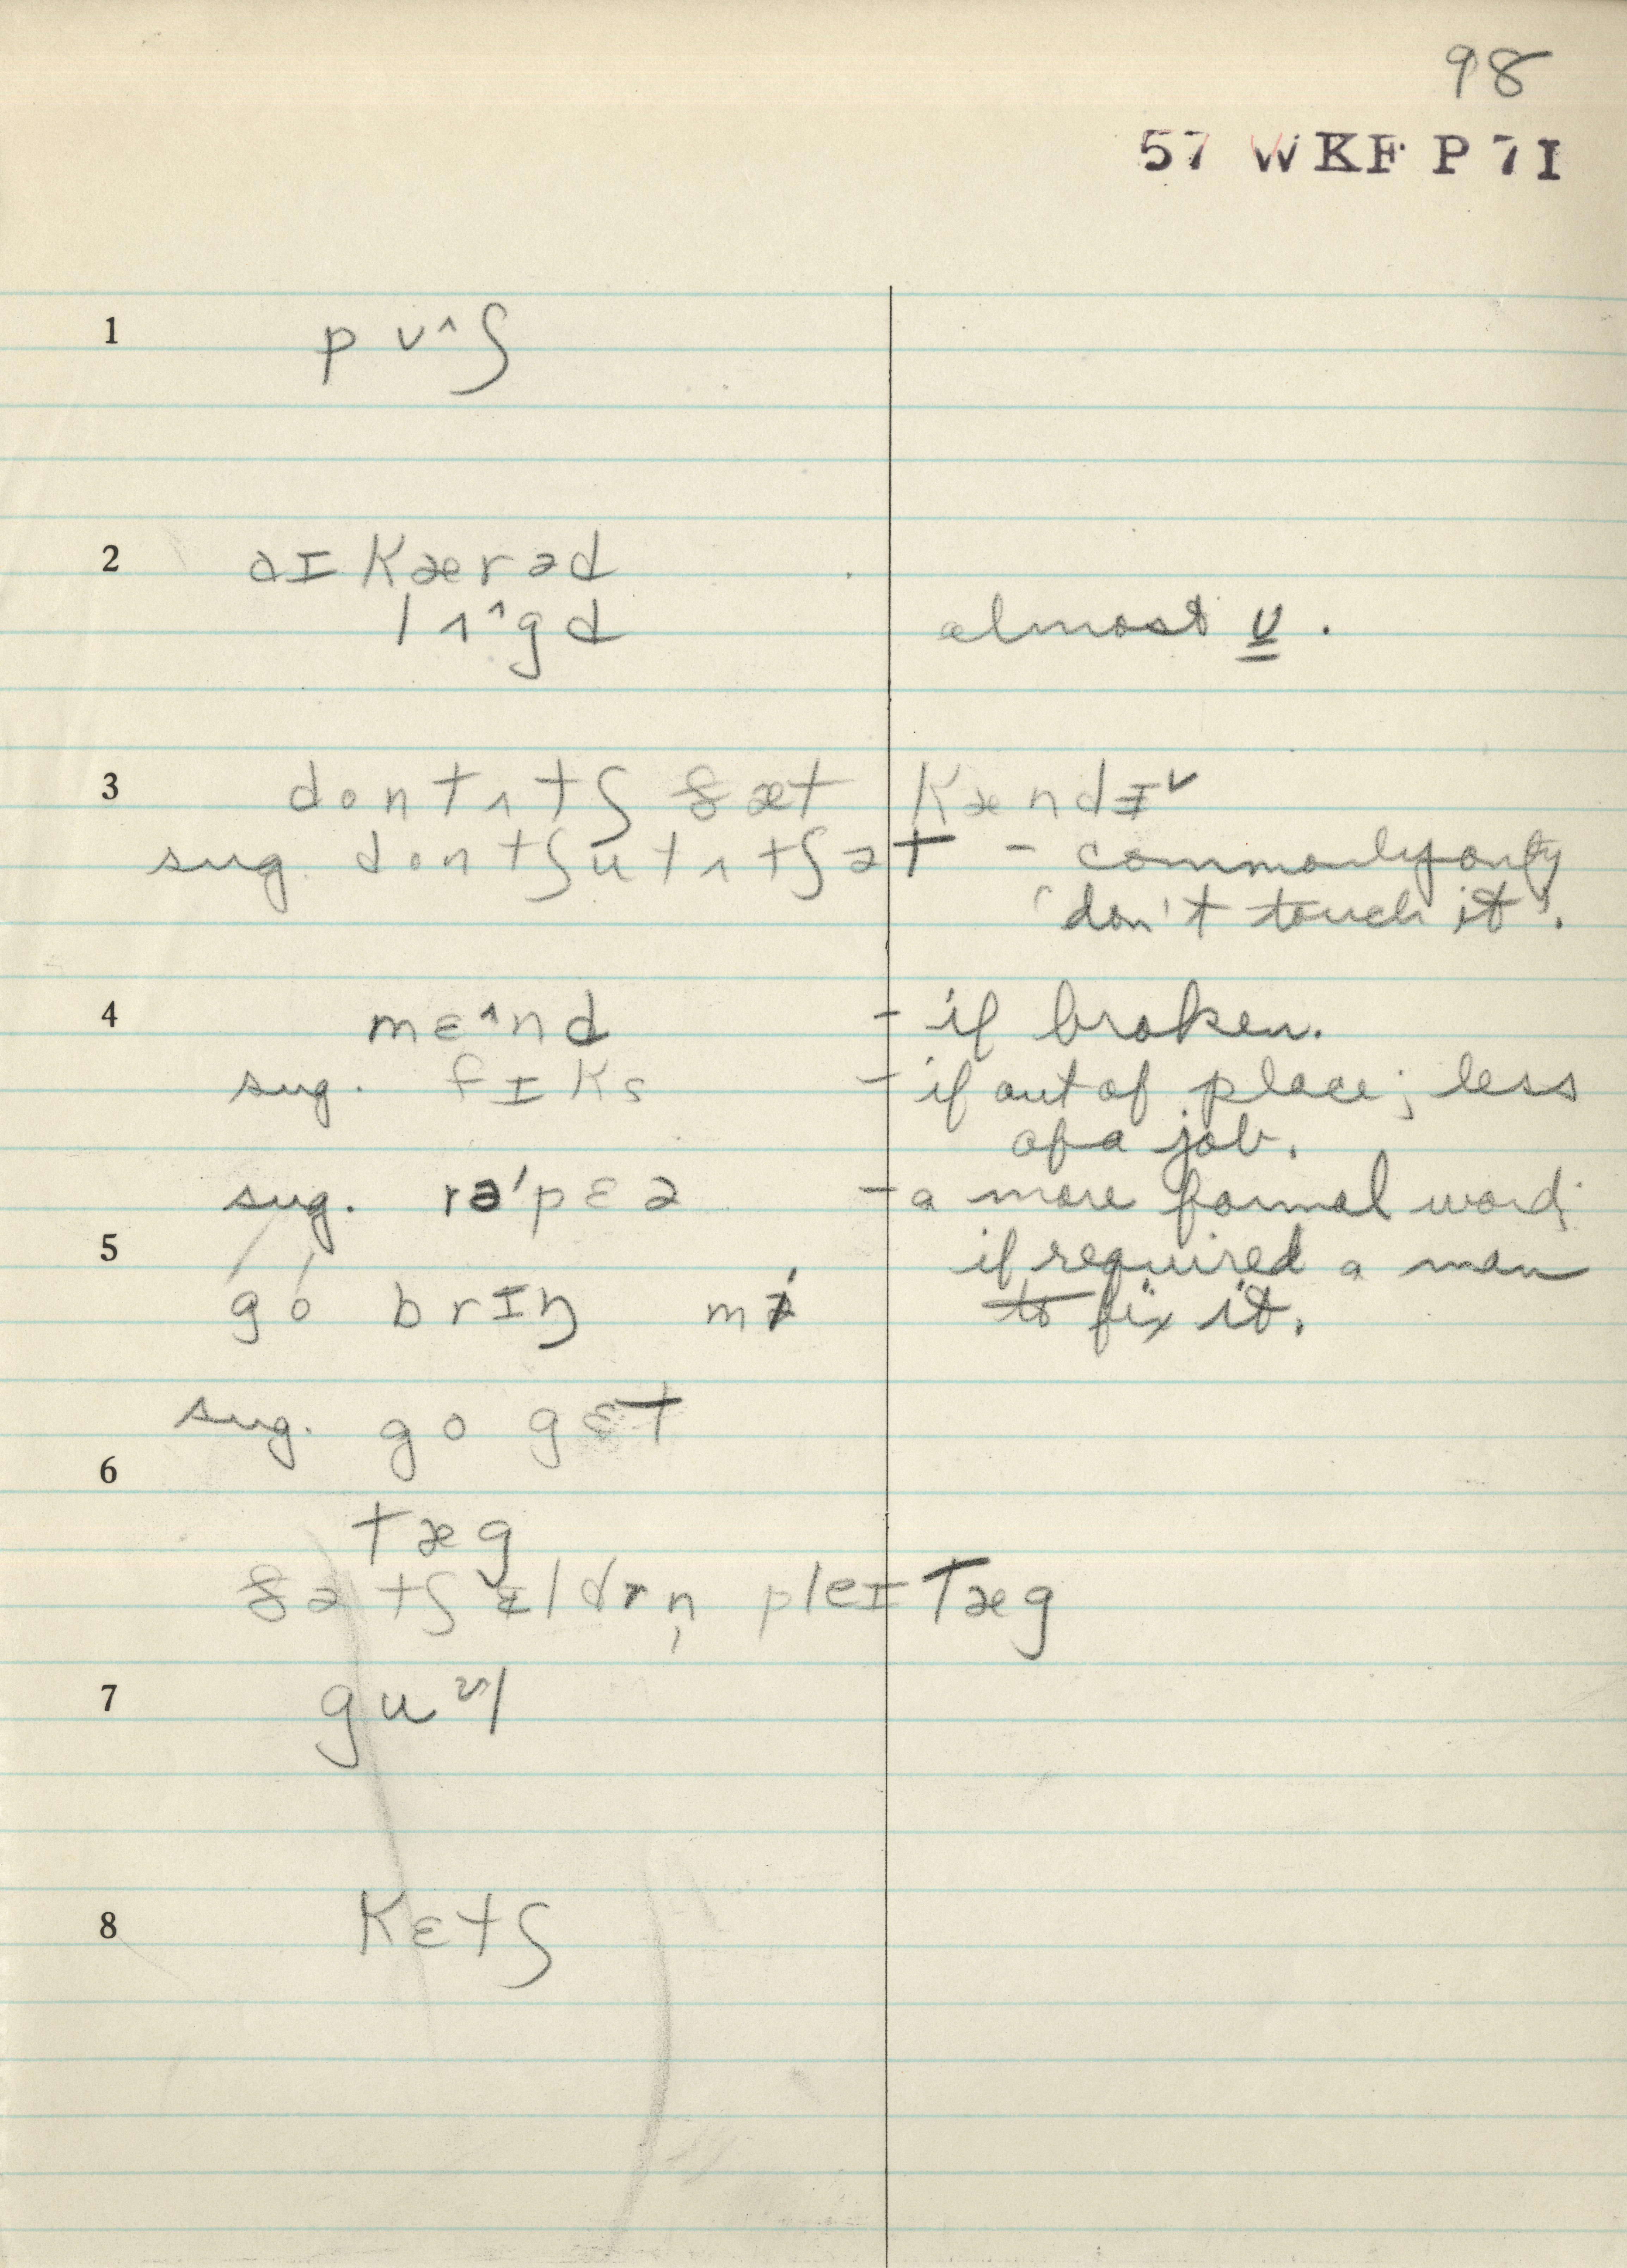 98
57 WKF P 7I
1 pʊ^ʃ
2 aɪ kærəd
lʌ^gd almost ʊ.
3 don tʌtʃ ðæt kændɨˇ
sug. dontʃu tʌtʃət - commonly only
'don't touch it'.
4 mɛ^nd - if broken.
sug. fɪks - if out of place; less
of a job.
sug. rə'pɛə - a more formal word;
5 if required a man
go brɪŋ mɨ to fix it.
sug. go gɛt
6
tæg
ðə tʃɨldrn̩ pleɪ tæg
7 guᵊl
8 kɛtʃ